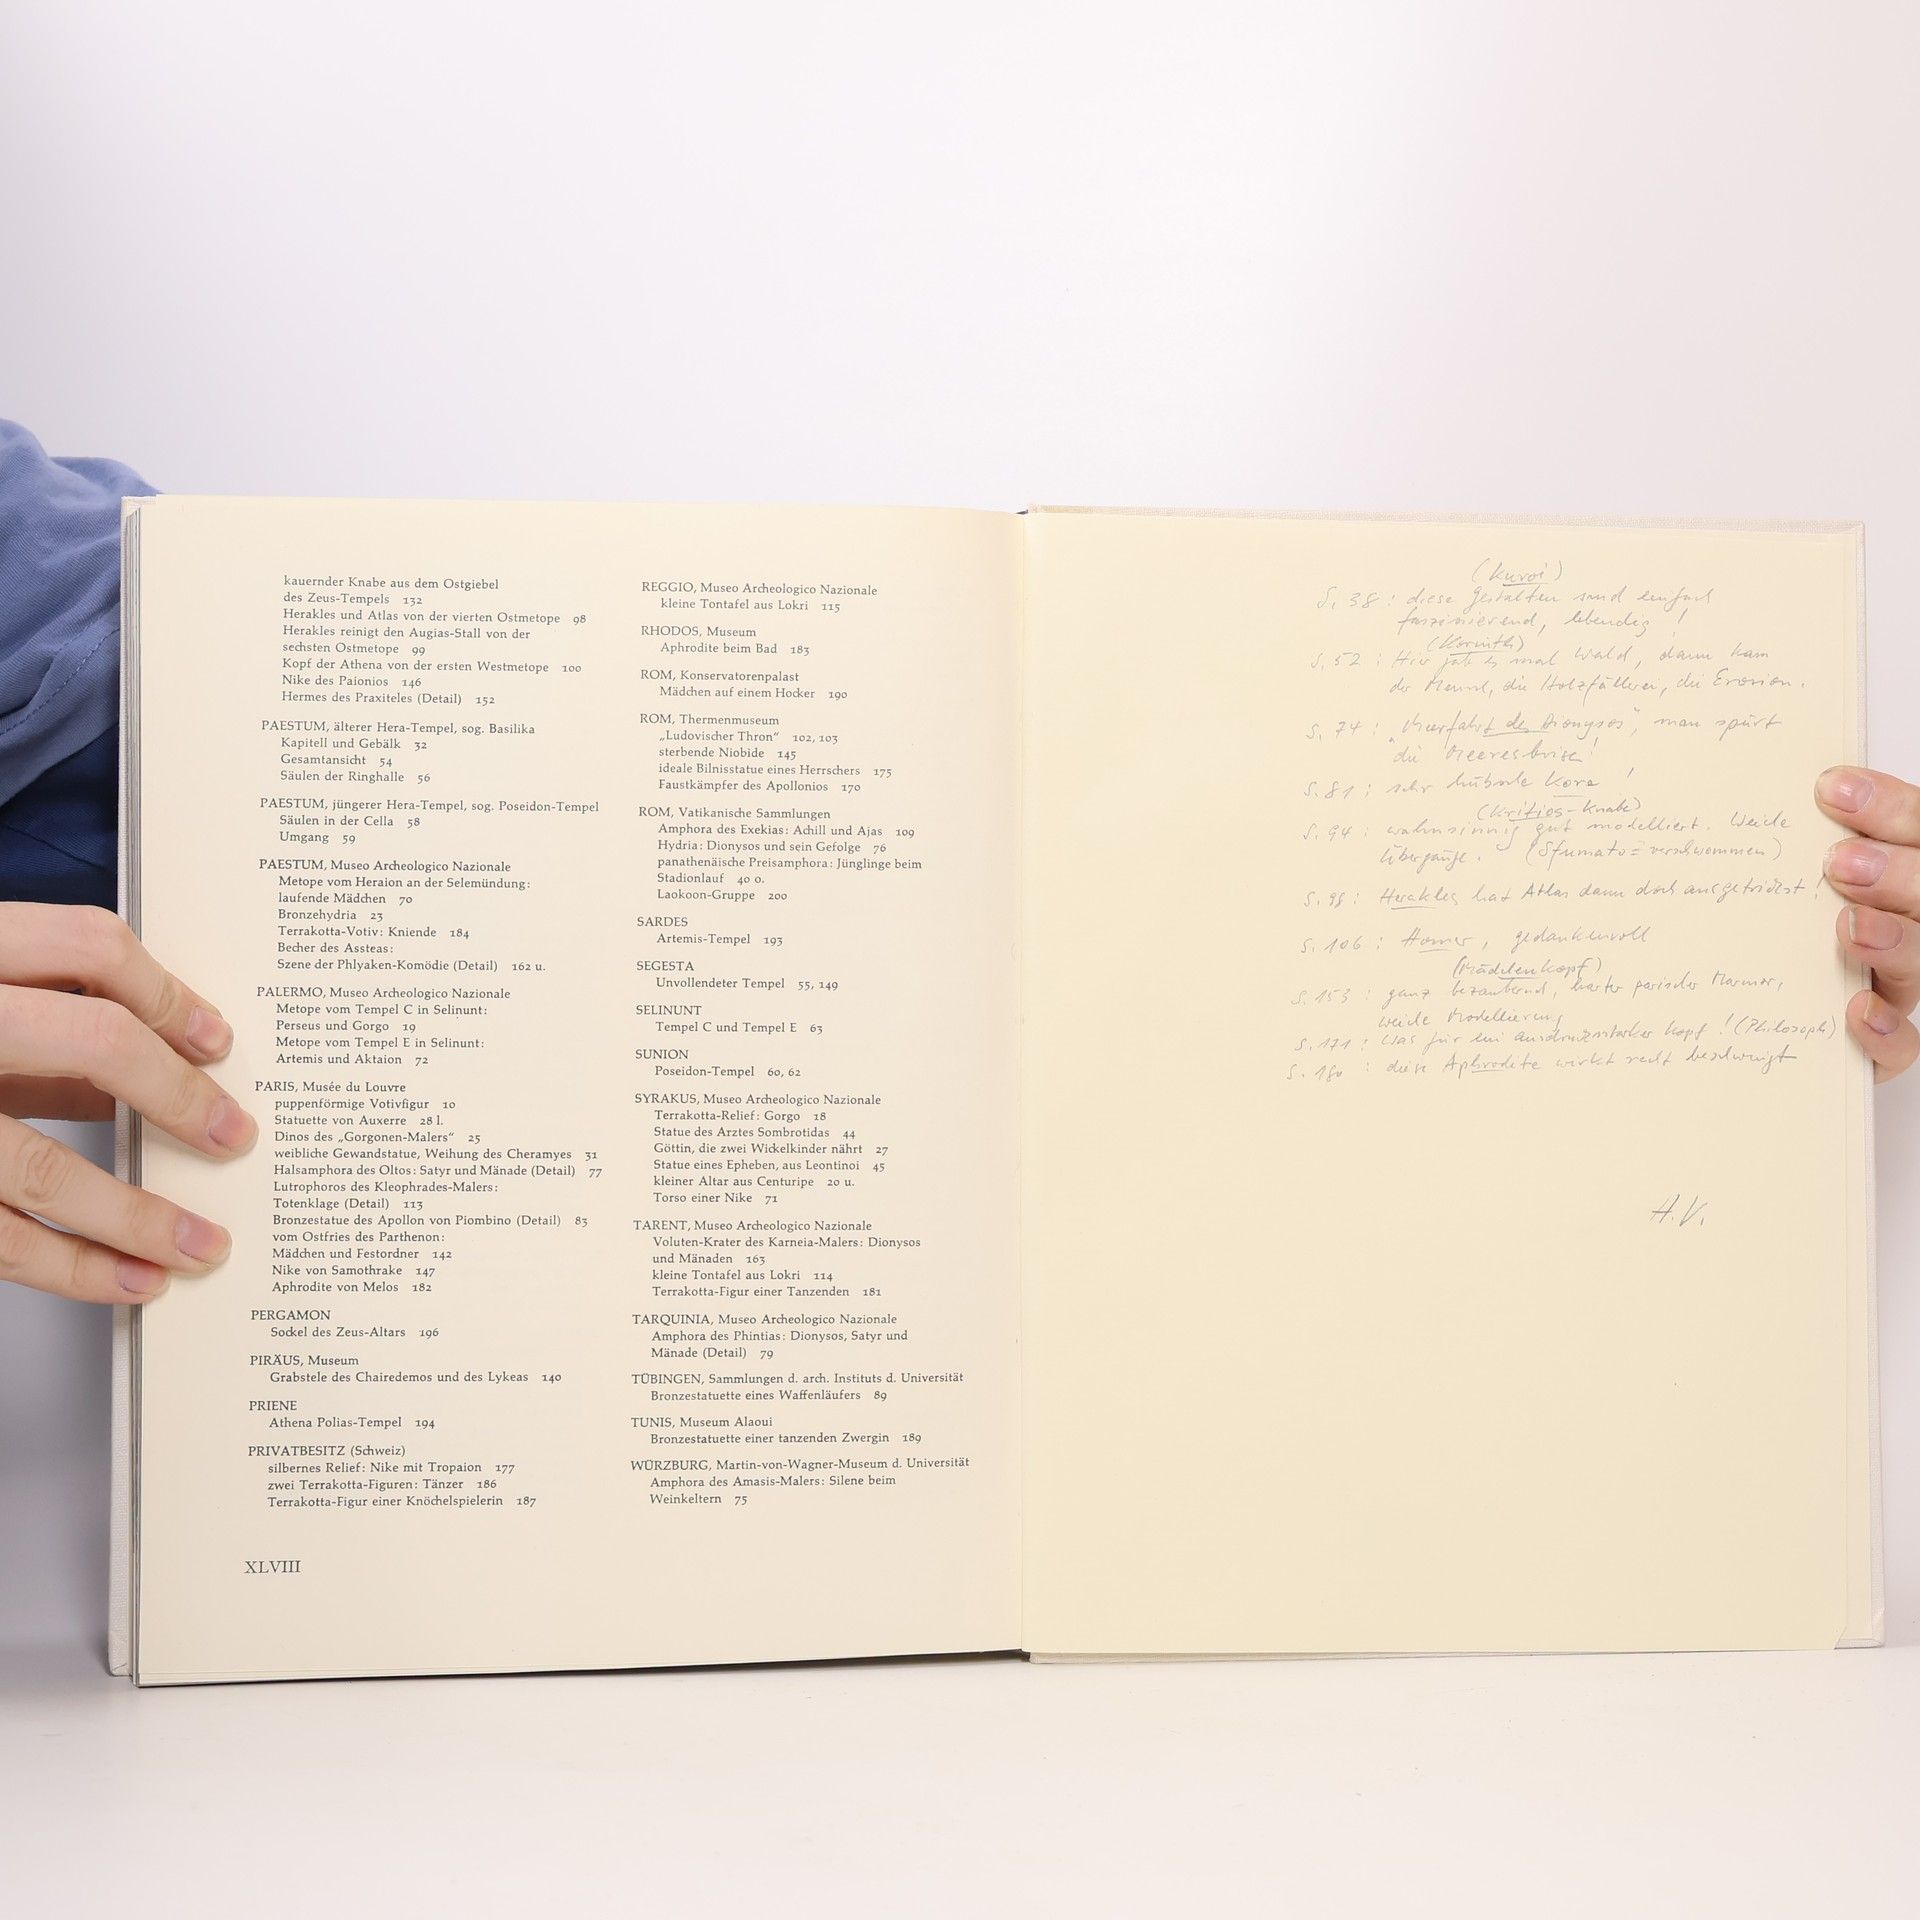 kauernder Knabe aus dem Ostgiebel
des Zeus-Tempels 132
Herakles und Atlas von der vierten Ostmetope 98
Herakles reinigt den Augias-Stall von der
sechsten Ostmetope 99
Kopf der Athena von der ersten Westmetope 100
Nike des Paionios 146
Hermes des Praxiteles (Detail) 152
PAESTUM, älterer Hera-Tempel, sog. Basilika
Kapitell und Gebälk 32
Gesamtansicht 54
Säulen der Ringhalle 56
PAESTUM, jüngerer Hera-Tempel, sog. Poseidon-Tempel
Säulen in der Cella 58
Umgang 59
PAESTUM, Museo Archeologico Nazionale
Metope vom Heraion an der Selemündung:
laufende Mädchen 70
Bronzehydria 23
Terrakotta-Votiv: Kniende 184
Becher des Assteas:
Szene der Phlyaken-Komödie (Detail) 162 u.
PALERMO, Museo Archeologico Nazionale
Metope vom Tempel C in Selinunt:
Perseus und Gorgo 19
Metope vom Tempel E in Selinunt:
Artemis und Aktaion 72
PARIS, Musée du Louvre
puppenförmige Votivfigur 10
Statuette von Auxerre 28 l.
Dinos des „Gorgonen-Malers“ 25
weibliche Gewandstatue, Weihung des Cheramyes 31
Halsamphora des Oltos: Satyr und Mänade (Detail) 77
Lutrophoros des Kleophrades-Malers:
Totenklage (Detail) 113
Bronzestatue des Apollon von Piombino (Detail) 83
vom Ostfries des Parthenon:
Mädchen und Festordner 142
Nike von Samothrake 147
Aphrodite von Melos 182
PERGAMON
Sockel des Zeus-Altars 196
PIRÄUS, Museum
Grabstele des Chairedemos und des Lykeas 140
PRIENE
Athena Polias-Tempel 194
PRIVATBESITZ (Schweiz)
silbernes Relief: Nike mit Tropaion 177
zwei Terrakotta-Figuren: Tänzer 186
Terrakotta-Figur einer Knöchelspielerin 187
XLVIII
REGGIO, Museo Archeologico Nazionale
kleine Tontafel aus Lokri 115
RHODOS, Museum
Aphrodite beim Bad 183
ROM, Konservatorenpalast
Mädchen auf einem Hocker 190
ROM, Thermenmuseum
„Ludovischer Thron“ 102, 103
sterbende Niobide 145
ideale Bilnisstatue eines Herrschers 175
Faustkämpfer des Apollonios 170
ROM, Vatikanische Sammlungen
Amphora des Exekias: Achill und Ajas 109
Hydria: Dionysos und sein Gefolge 76
panathenäische Preisamphora: Jünglinge beim
Stadionlauf 40 o.
Laokoon-Gruppe 200
SARDES
Artemis-Tempel 193
SEGESTA
Unvollendeter Tempel 55, 149
SELINUNT
Tempel C und Tempel E 63
SUNION
Poseidon-Tempel 60, 62
SYRAKUS, Museo Archeologico Nazionale
Terrakotta-Relief: Gorgo 18
Statue des Arztes Sombrotidas 44
Göttin, die zwei Wickelkinder nährt 27
Statue eines Epheben, aus Leontinoi 45
kleiner Altar aus Centuripe 20 u.
Torso einer Nike 71
TARENT, Museo Archeologico Nazionale
Voluten-Krater des Karneia-Malers: Dionysos
und Mänaden 163
kleine Tontafel aus Lokri 114
Terrakotta-Figur einer Tanzenden 181
TARQUINIA, Museo Archeologico Nazionale
Amphora des Phintias: Dionysos, Satyr und
Mänade (Detail) 79
TÜBINGEN, Sammlungen d. arch. Instituts d. Universität
Bronzestatuette eines Waffenläufers 89
TUNIS, Museum Alaoui
Bronzestatuette einer tanzenden Zwergin 189
WÜRZBURG, Martin-von-Wagner-Museum d. Universität
Amphora des Amasis-Malers: Silene beim
Weinkeltern 75
(Kuroi)
S. 38: diese Gestalten sind einfach
faszinierend, lebendig!
(Korinth)
S. 52: Hier gab es mal Wald, dann kam
der Mensch, die Holzfällerei, die Erosion.
S. 74: „Meerfahrt des Dionysos“, man spürt
die Meeresbrise!
S. 81: sehr hübsche Kore!
(Kritios-Knabe)
S. 94: wahnsinnig gut modelliert. Weiche
Übergänge. (Sfumato = verschwommen)
S. 98: Herakles hat Atlas dann doch ausgetrickst!
S. 106: Homer, gedankenvoll
(Mädchenkopf)
S. 153: ganz bezaubernd, harter parischer Marmor,
weiche Modellierung
S. 171: Was für ein ausdrucksstarker Kopf! (Philosoph)
S. 180: diese Aphrodite wirkt recht beschwingt
H.V.